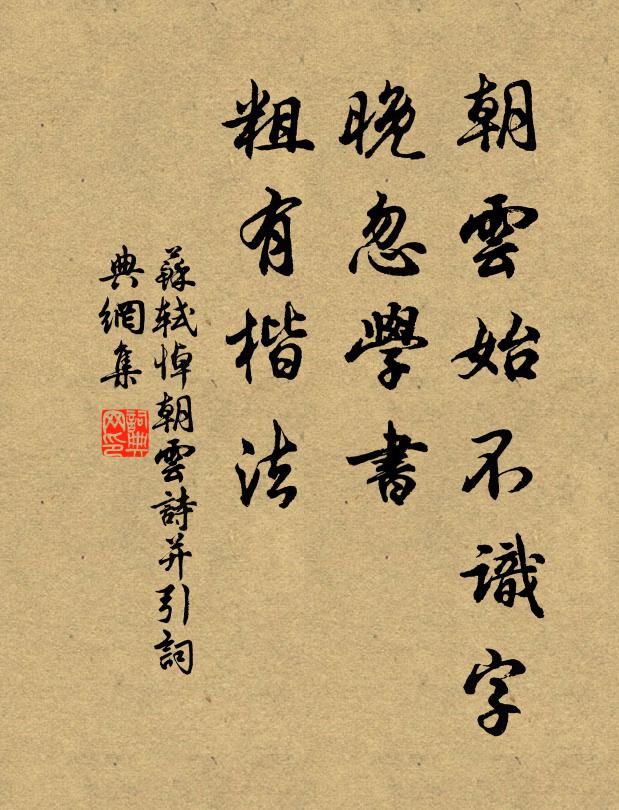 朝雲始不識字
晚忽學書
粗有楷法
蘇軾悼朝雲詩并引詞
典網集
詞典
网印